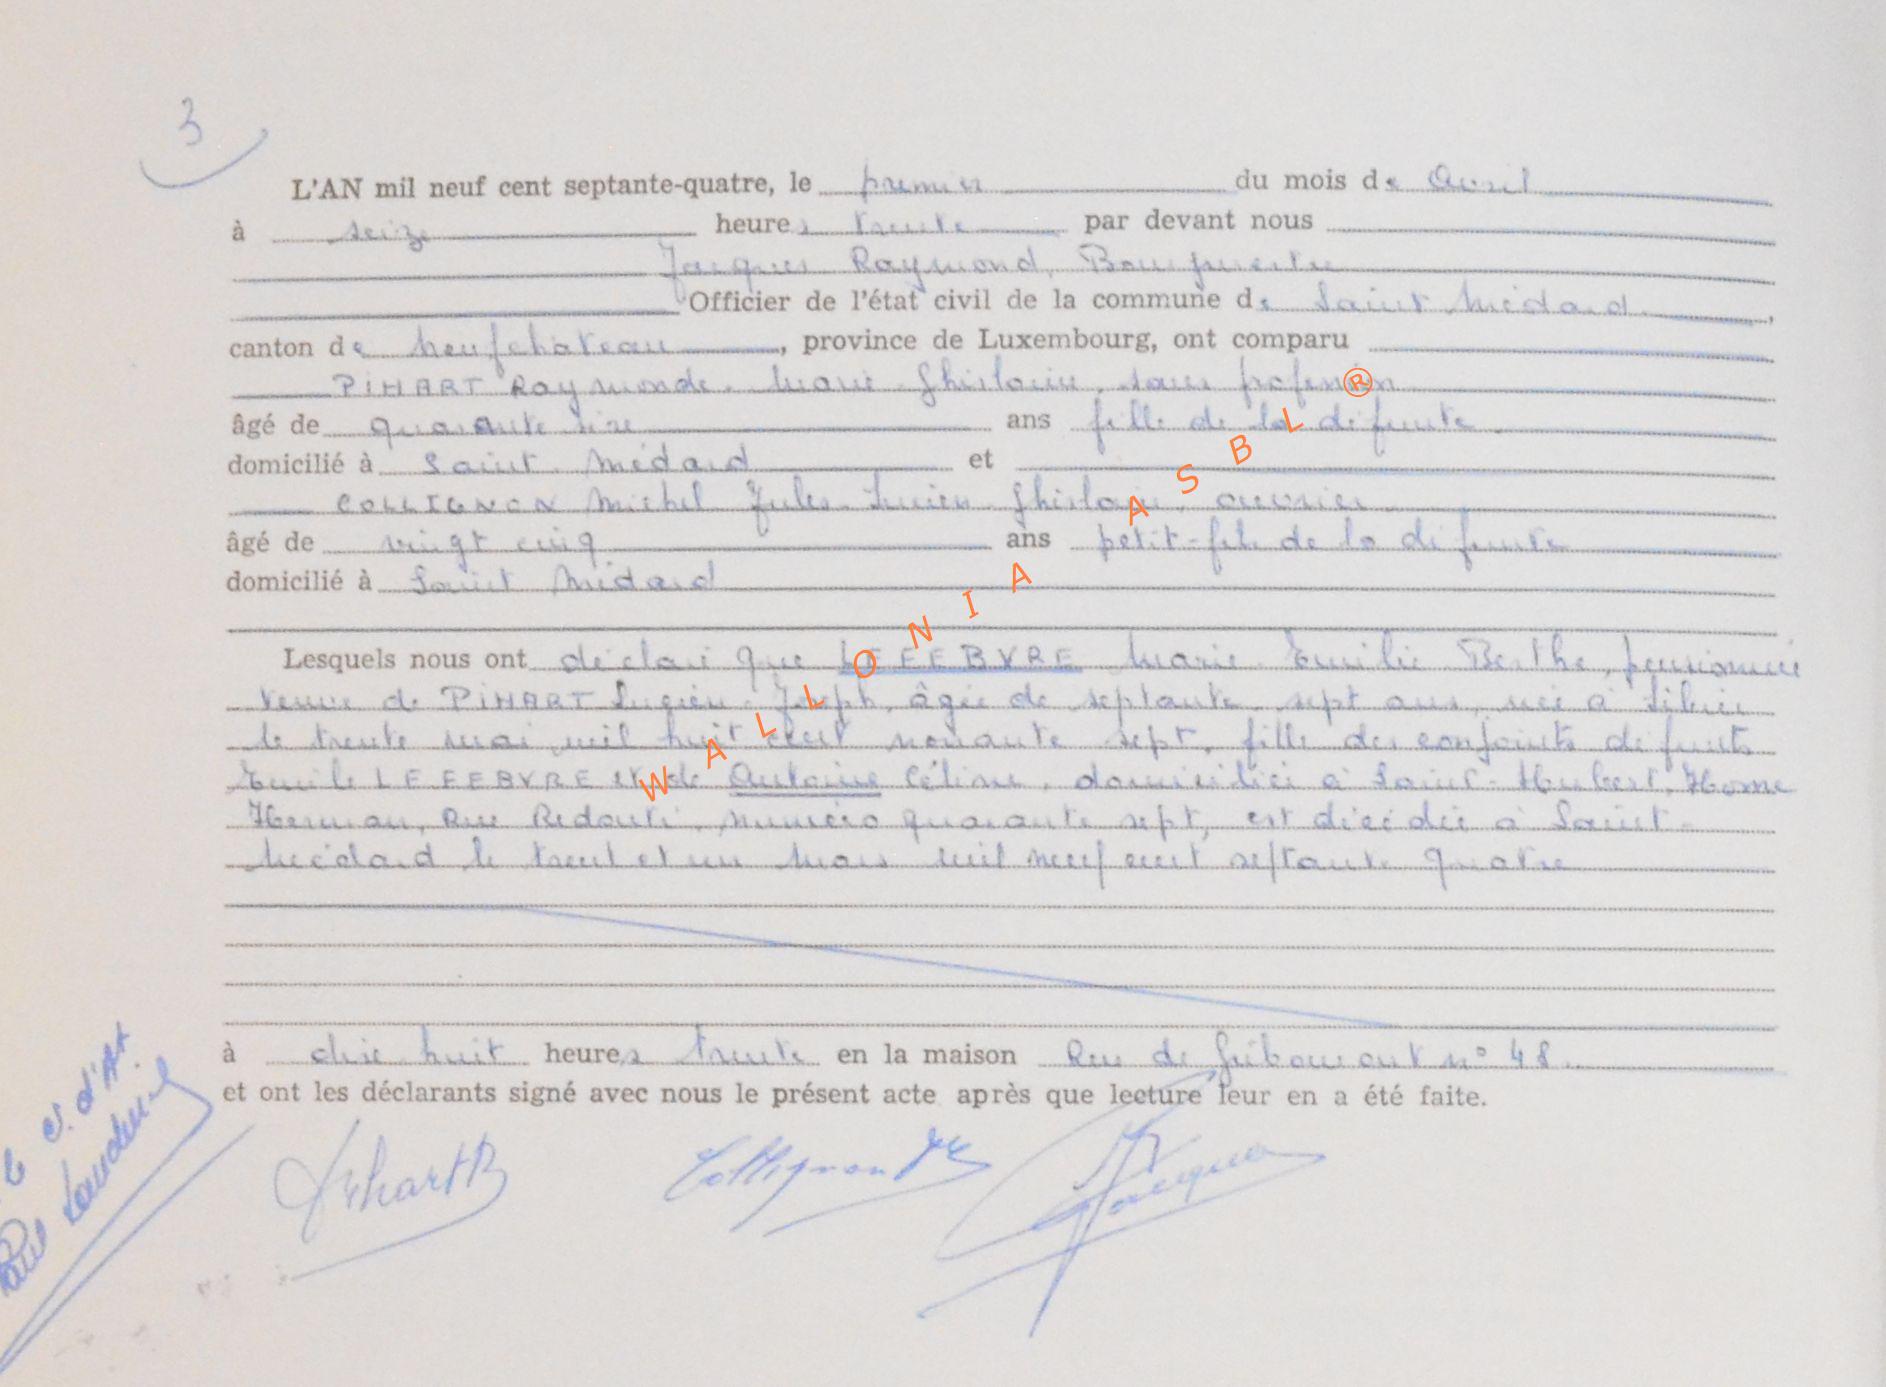 3
L'AN mil neuf cent septante-quatre, le premier du mois de Avril
à seize heures trente par devant nous
Jacques Raymond, Bourgmestre
Officier de l'état civil de la commune de Saint Médard,
canton de Neufchâteau, province de Luxembourg, ont comparu
PIHART Raymonde. Marie Ghislaine, sans profession
âgé de quarante six ans fille de la défunte.
domicilié à Saint. Médard et
COLLIGNON Michel Jules Lucien Ghislain, ouvrier
âgé de vingt cinq ans petit-fils de la défunte
domicilié à Saint Médard
Lesquels nous ont déclaré que LEFEBVRE Marie Emilie Berthe, pensionnée
veuve de PIHART Lucien Joseph, âgée de septante sept ans, née à Sibret
le trente mai mil huit cent nonante sept, fille des conjoints défunts
Emile LEFEBVRE et de Antoine Céline, domiciliée à Saint-Hubert, Home
Herman, Rue Redouté, numéro quarante sept, est décédée à Saint-
Médard le trente et un Mars mil neuf cent septante quatre
à dix huit heures trente en la maison Rue de Gribomont n° 48.
et ont les déclarants signé avec nous le présent acte après que lecture leur en a été faite.
Pihart R Collignon Jacques
WALLONIA ASBL ®